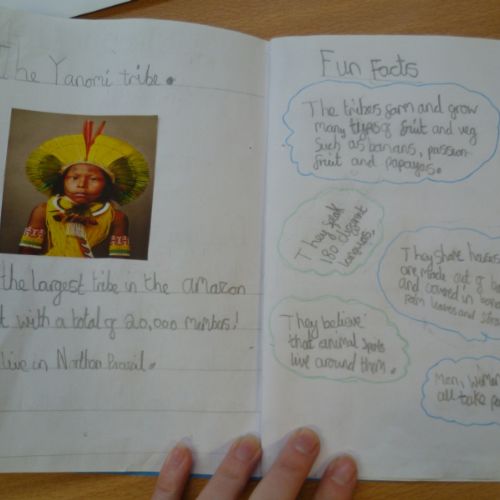 The Yanomi tribe.
the largest tribe in the amazon
t with a total of 20,000 members!
live in Northan Brazil.
Fun Facts
The tribes farm and grow
many types of fruit and veg
such as banans, passion
fruit and papayas.
They speak
180 different
languages.
They share houses
are made out of
and covered in
palm leaves and
They believe
that animal spirits
live around them.
Men, women
all take